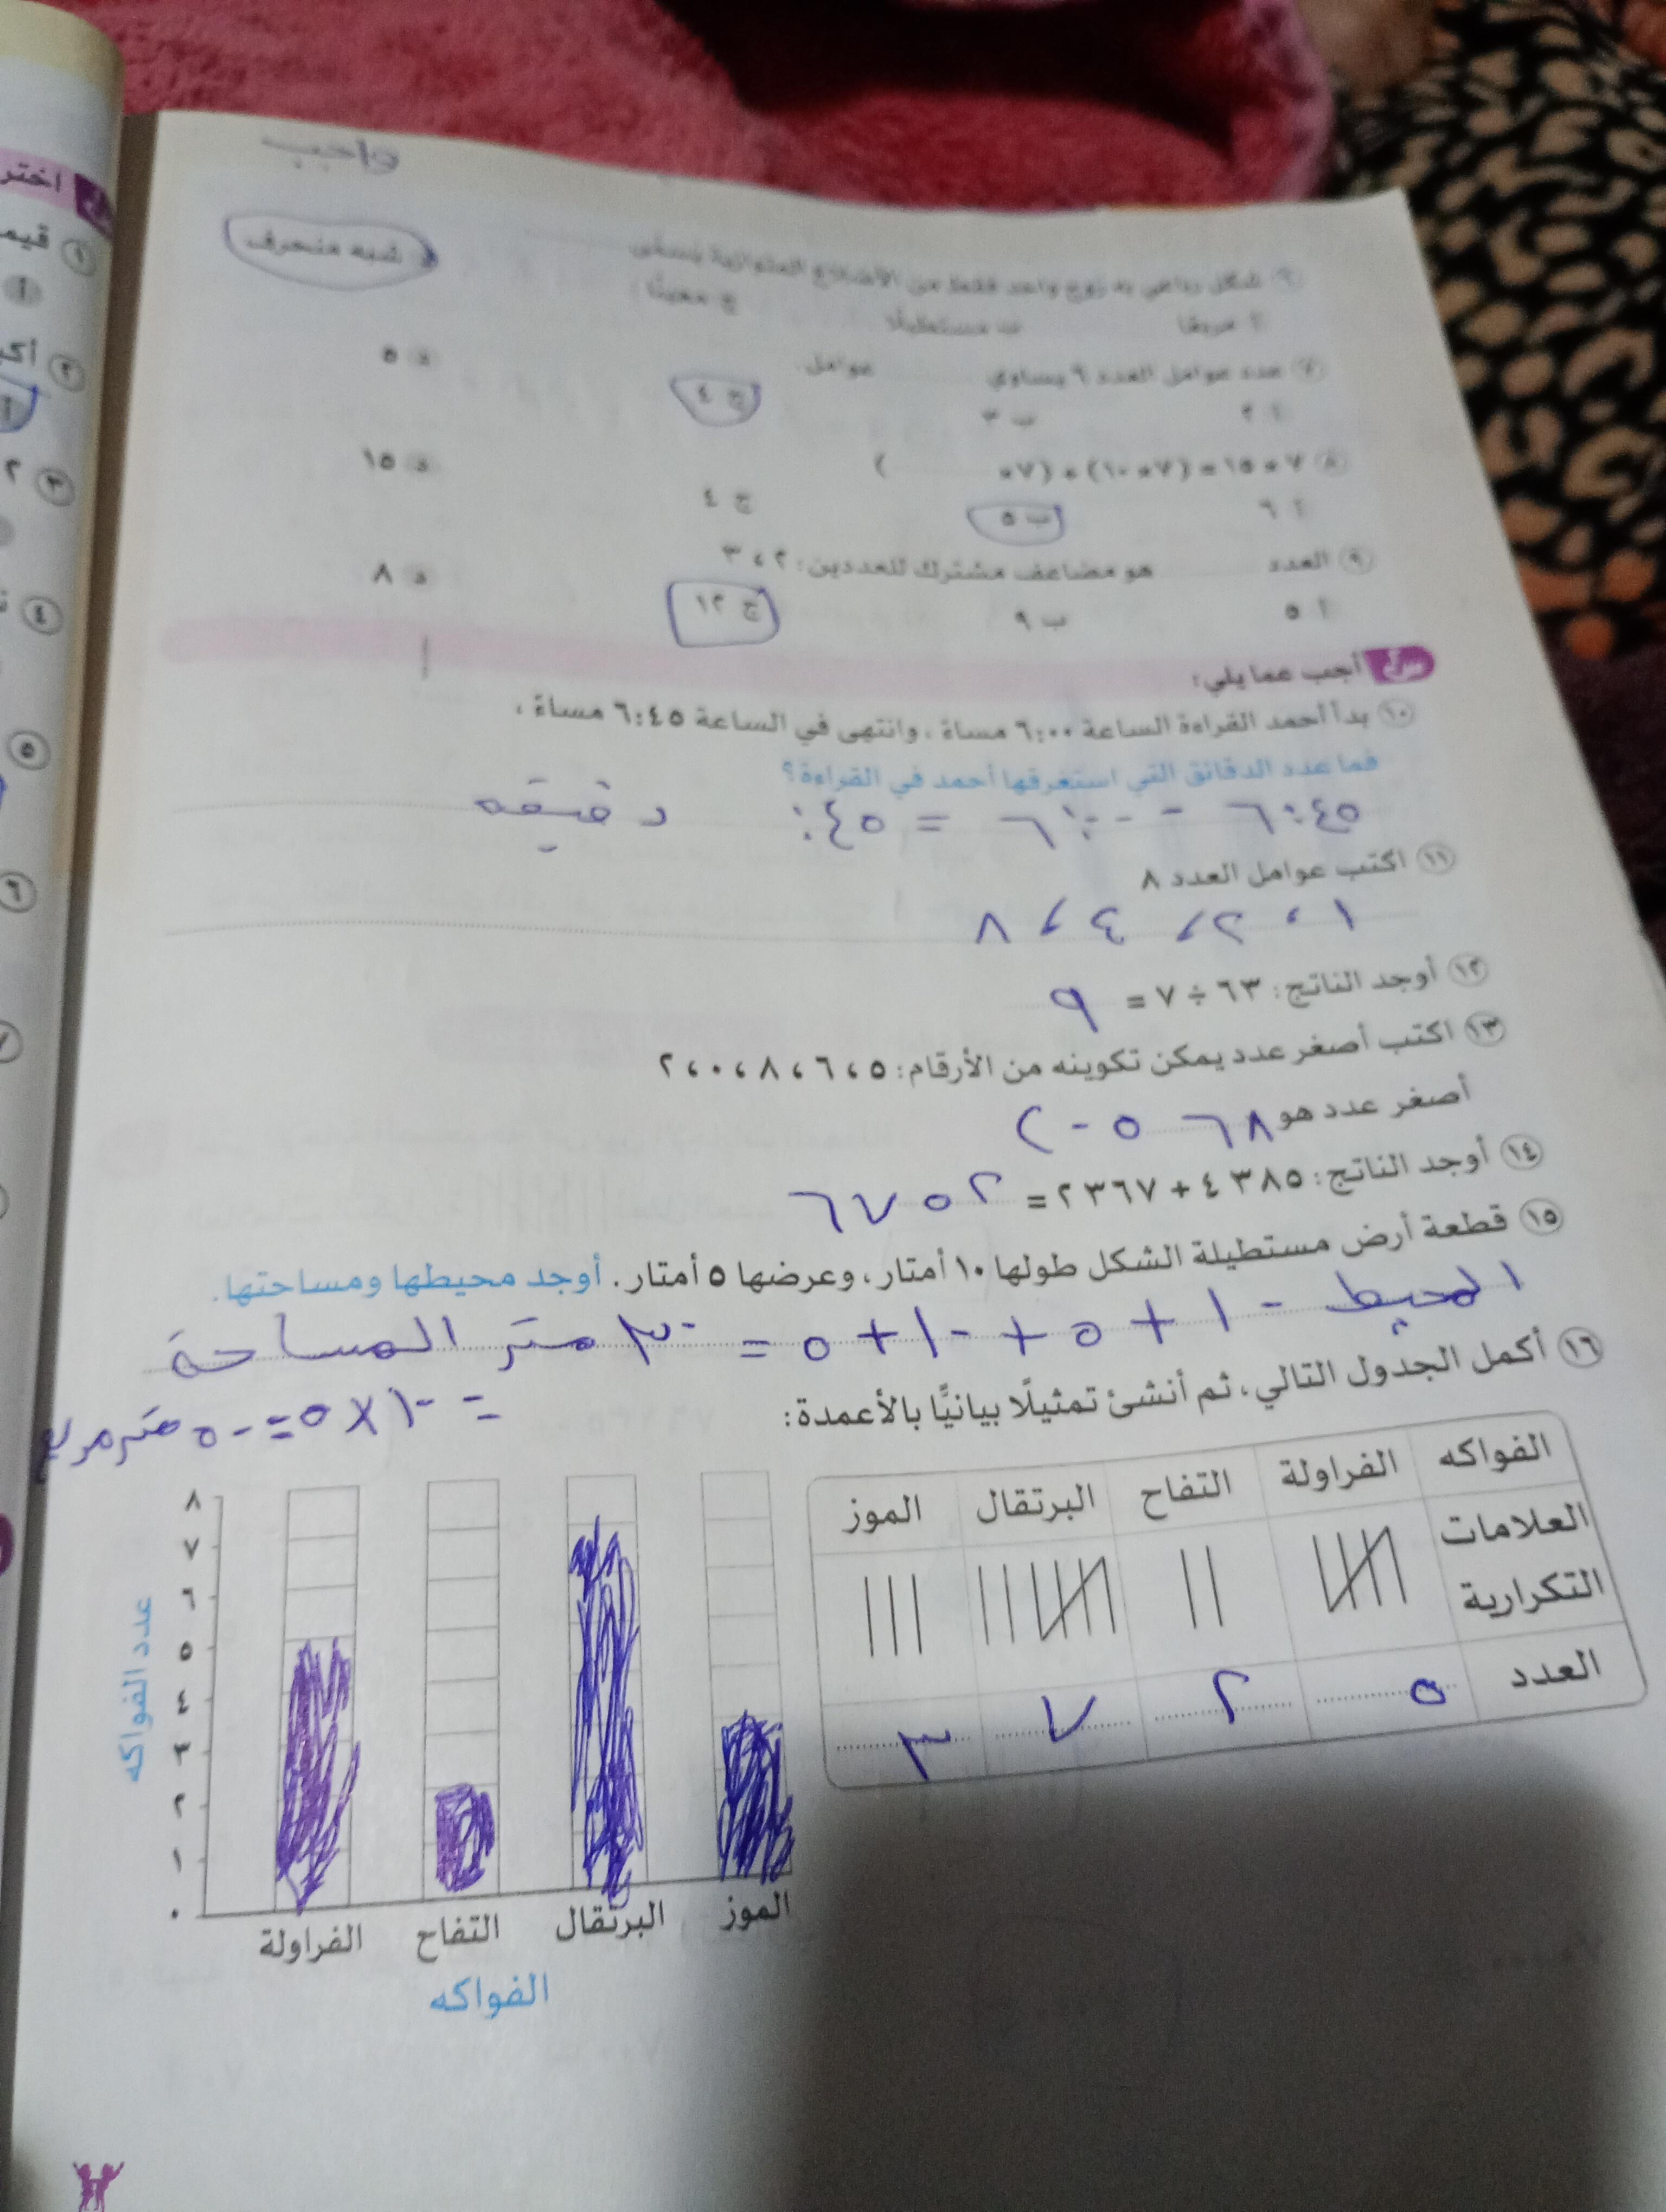 واجب
٦ شكل رباعي به زوج واحد فقط من الأضلاع المتوازية يسمى
أ مربعًا ب مستطيلًا ج معينًا د شبه منحرف
٧ عدد عوامل العدد ٩ يساوي عوامل.
أ ٢ ب ٣ ج ٤ د ٥
٨ ٧ × ١٥ = (٧ × ١٠) + (٧ × )
أ ٦ ب ٥ ج ٤ د ١٥
٩ العدد هو مضاعف مشترك للعددين: ٢ ، ٣
أ ٥ ب ٩ ج ١٢ د ٨
أجب عما يلي:
١٠ بدأ أحمد القراءة الساعة ٦:٠٠ مساءً ، وانتهى في الساعة ٦:٤٥ مساءً ،
فما عدد الدقائق التي استغرقها أحمد في القراءة؟
٦:٤٥ - ٦:٠٠ = :٤٥ دقيقه
١١ اكتب عوامل العدد ٨
١ ، ٢ ، ٤ ، ٨
١٢ أوجد الناتج: ٦٣ ÷ ٧ = ٩
١٣ اكتب أصغر عدد يمكن تكوينه من الأرقام: ٥ ، ٦ ، ٨ ، ٠ ، ٢
أصغر عدد هو ٢٠٥٦٨
١٤ أوجد الناتج: ٤٣٨٥ + ٢٣٦٧ = ٦٧٥٢
١٥ قطعة أرض مستطيلة الشكل طولها ١٠ أمتار، وعرضها ٥ أمتار. أوجد محيطها ومساحتها.
المحيط ١٠ + ٥ + ١٠ + ٥ = ٣٠ متر المساحة
= ١٠ × ٥ = ٥٠ متر مربع
١٦ أكمل الجدول التالي، ثم أنشئ تمثيلًا بيانيًّا بالأعمدة:
الفواكه الفراولة التفاح البرتقال الموز
العلامات
التكرارية
العدد ٥ ٢ ٧ ٣
عدد الفواكه
٨
٧
٦
٥
٤
٣
٢
١
٠
الفراولة التفاح البرتقال الموز
الفواكه
اختر
١ قيم
أ
٢ أك
أ
٣ ٢
٤
٥
٦
٧